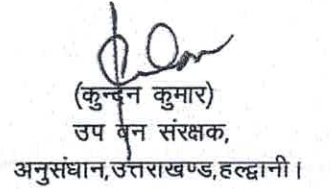 (कुन्दन कुमार)
उप वन संरक्षक,
अनुसंधान,उत्तराखण्ड,हल्द्वानी।